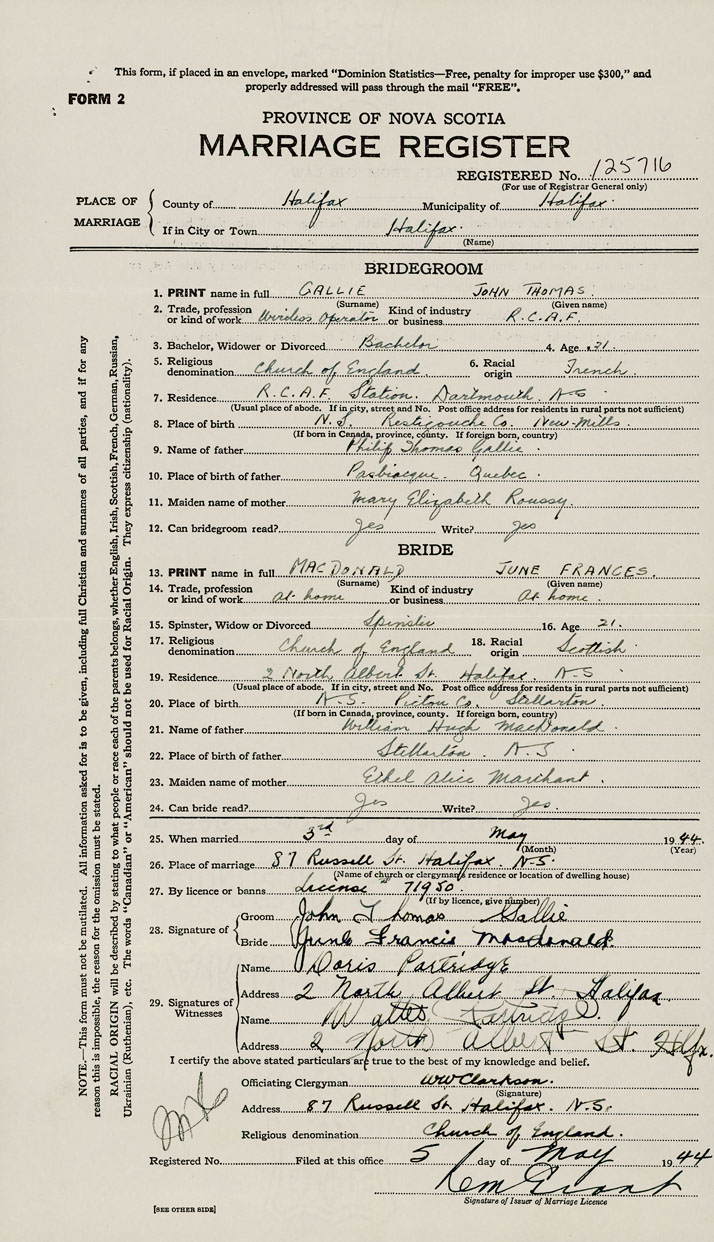 This form, if placed in an envelope, marked "Dominion Statistics—Free, penalty for improper use $300," and
properly addressed will pass through the mail "FREE".
FORM 2
PROVINCE OF NOVA SCOTIA
MARRIAGE REGISTER
REGISTERED No. 125716
(For use of Registrar General only)
PLACE OF MARRIAGE
County of Halifax Municipality of Halifax
If in City or Town Halifax
(Name)
BRIDEGROOM
1. PRINT name in full GALLIE JOHN THOMAS
(Surname) (Given name)
2. Trade, profession or kind of work Wireless Operator Kind of industry or business R.C.A.F.
3. Bachelor, Widower or Divorced Bachelor 4. Age 21
5. Religious denomination Church of England 6. Racial origin French
7. Residence R.C.A.F. Station. Dartmouth. N-S
(Usual place of abode. If in city, street and No. Post office address for residents in rural parts not sufficient)
8. Place of birth N.S. Restigouche Co. New Mills.
(If born in Canada, province, county. If foreign born, country)
9. Name of father Philip Thomas Gallie
10. Place of birth of father Pasbiacque. Quebec.
11. Maiden name of mother Mary Elizabeth Roussy
12. Can bridegroom read? Yes Write? Yes
BRIDE
13. PRINT name in full MACDONALD JUNE FRANCES.
(Surname) (Given name)
14. Trade, profession or kind of work at home Kind of industry or business At home.
15. Spinster, Widow or Divorced Spinster 16. Age 21.
17. Religious denomination Church of England 18. Racial origin Scottish
19. Residence 2 North Albert St. Halifax. N-S
(Usual place of abode. If in city, street and No. Post office address for residents in rural parts not sufficient)
20. Place of birth N-S- Pictou Co. Stellarton.
(If born in Canada, province, county. If foreign born, country)
21. Name of father William Hugh MacDonald
22. Place of birth of father Stellarton. N-S
23. Maiden name of mother Ethel Alice Marchant.
24. Can bride read? Yes Write? Yes.
25. When married 3rd day of May 1944.
(Month) (Year)
26. Place of marriage 87 Russell St. Halifax. N-S.
(Name of church or clergyman's residence or location of dwelling house)
27. By licence or banns License 71950.
(If by licence, give number)
28. Signature of
Groom John Thomas Gallie
Bride June Francis Macdonald.
29. Signatures of Witnesses
Name Doris Partridge
Address 2 North Albert St. Halifax.
Name Walter Partridge.
Address 2 North Albert St. Hlfx.
I certify the above stated particulars are true to the best of my knowledge and belief.
Officiating Clergyman WWClarkson.
(Signature)
Address 87 Russell St Halifax. N.S.
Religious denomination Church of England.
Registered No. Filed at this office 5 day of May 1944
Signature of Issuer of Marriage Licence
[SEE OTHER SIDE]
NOTE.—This form must not be mutilated. All information asked for is to be given, including full Christian and surnames of all parties, and if for any
reason this is impossible, the reason for the omission must be stated.
RACIAL ORIGIN will be described by stating to what people or race each of the parents belongs, whether English, Irish, Scottish, French, German, Russian,
Ukrainian (Ruthenian), etc. The words "Canadian" or "American" should not be used for Racial Origin. They express citizenship (nationality).